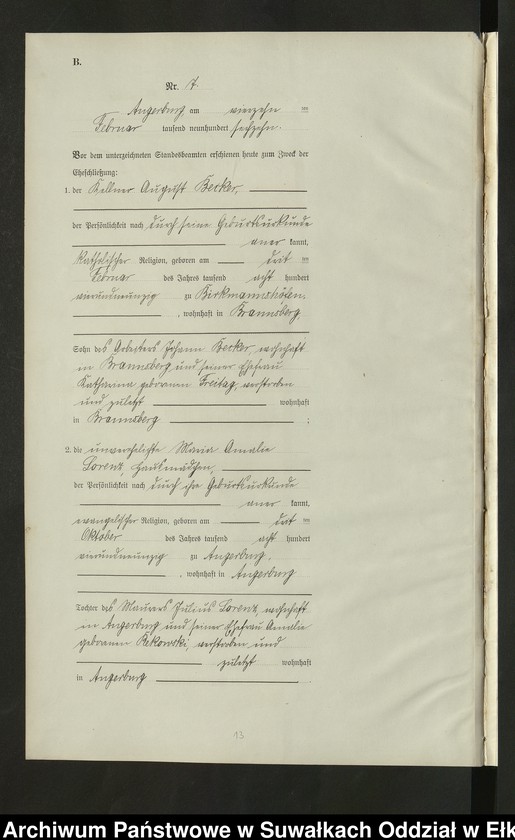 B.
Nr. 7.
Angerburg am vierzehn ten
Februar tausend neunhundert sechzehn.
Vor dem unterzeichneten Standesbeamten erschienen heute zum Zweck der
Eheschließung:
1. der Kellner August Becker,
der Persönlichkeit nach durch seine Geburtsurkunde
aner kannt,
katholischer Religion, geboren am ten
Februar des Jahres tausend acht hundert
vierundneunzig zu
, wohnhaft in Braunsberg
Sohn des Arbeiters Johann Becker, wohnhaft
in Braunsberg und seiner Ehefrau
Katharina geborenen Freitag, verstorben
und zuletzt wohnhaft
in Braunsberg ;
2. die unverehelichte Maria Amalie
Lorenz, Hausmädchen,
der Persönlichkeit nach durch ihre Geburtsurkunde
aner kannt,
evangelischer Religion, geboren am ten
Oktober des Jahres tausend acht hundert
vierundneunzig zu Angerburg,
, wohnhaft in Angerburg
Tochter des Maurers Julius Lorenz, wohnhaft
in Angerburg und seiner Ehefrau Amalie
geborenen Rekowski, verstorben und
zuletzt wohnhaft
in Angerburg .
13
Archiwum Państwowe w Suwałkach Oddział w Ełk